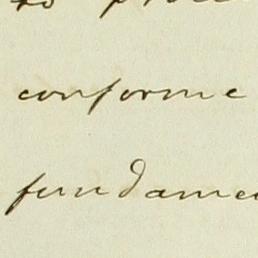 to
conforme
fundame